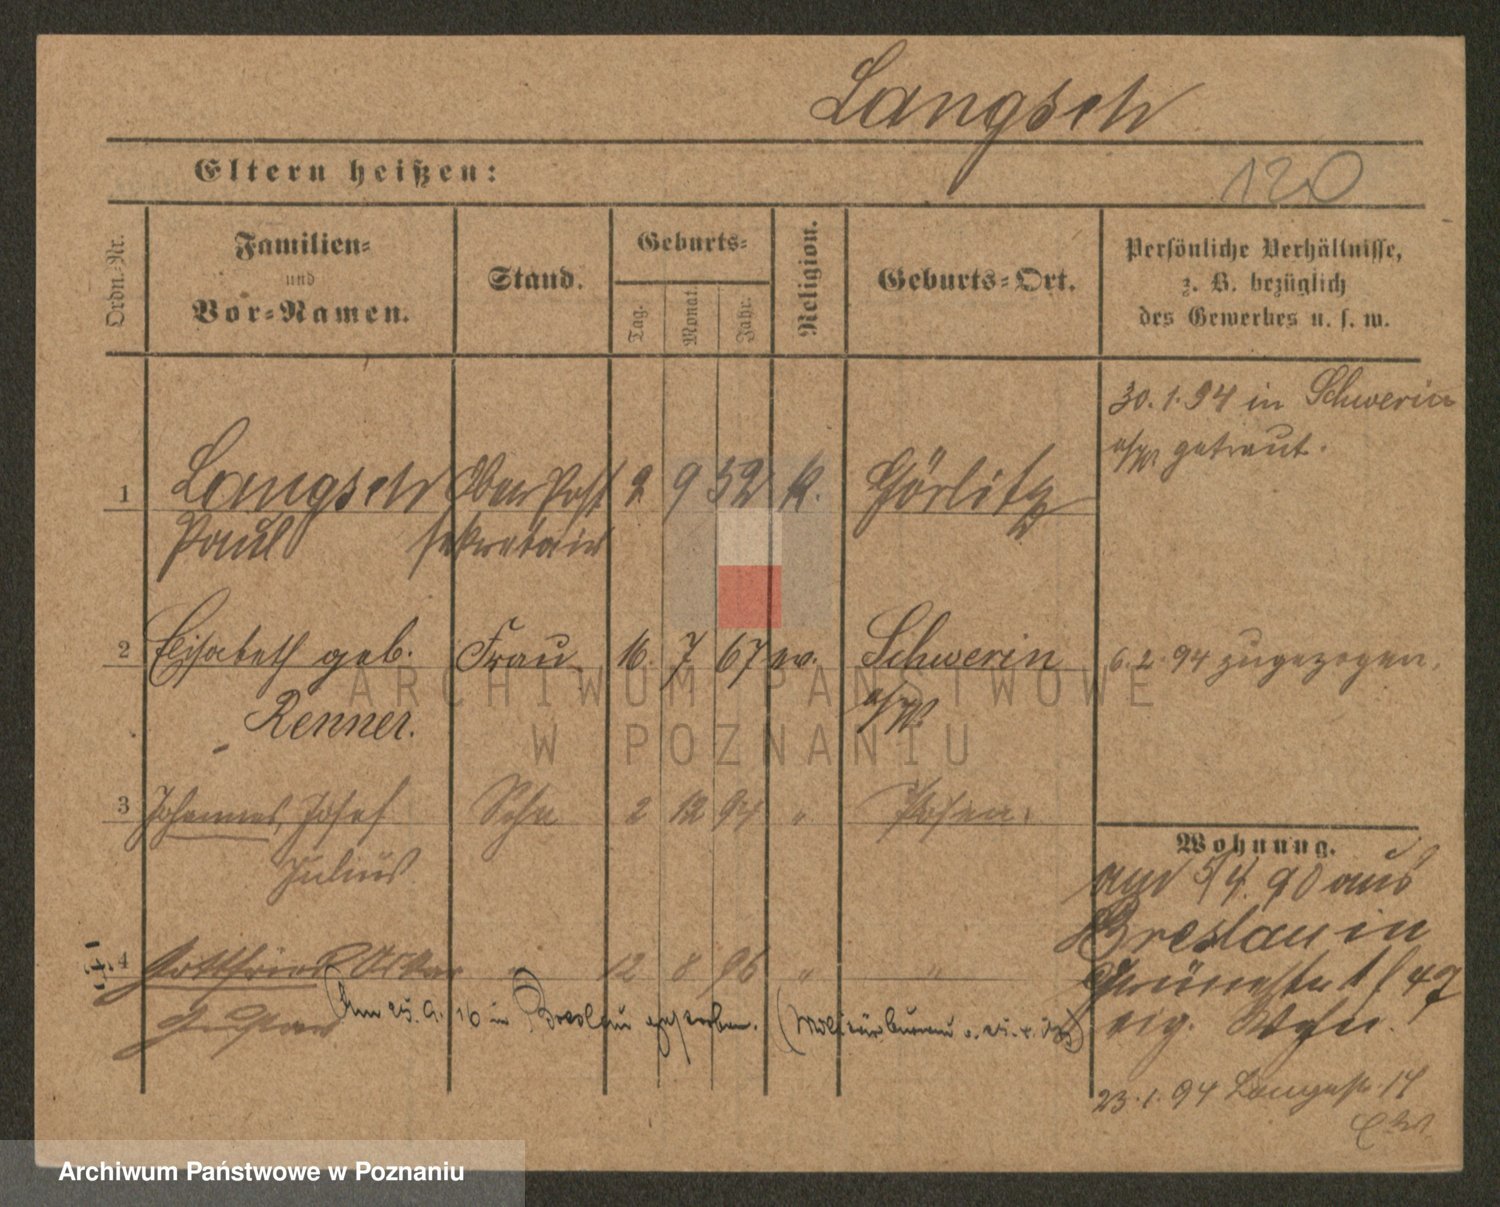 Langsch
120
Eltern heißen:
Ordn.=Nr.
Familien=
und
Vor=Namen.
Stand.
Geburts=
Tag.
Monat.
Jahr.
Religion.
Geburts=Ort.
Persönliche Verhältnisse,
z. B. bezüglich
des Gewerbes u. s. w.
30.1.94 in Schwerin
a/W. getraut.
1 Langsch Ober Post 2 9 52 k. Görlitz
Paul sekretair
2 Elisabeth geb. Frau 16. 7. 67 ev. Schwerin
Renner. a/W.
6.2.94 zugezogen.
3 Johannes, Josef Sohn 2 12 94 " Posen.
Julius
4 Gottfried Oskar " 12 8 96 " "
Gustav
(Am 25. 9. 16 in Breslau gestorben. (Militärbureau
Wohnung.
5/4. 90 aus
Breslau in
Grünestr 47
eig. Wohn.
23.1.94 Langestr. 14
ARCHIWUM PAŃSTWOWE
W POZNANIU
Archiwum Państwowe w Poznaniu